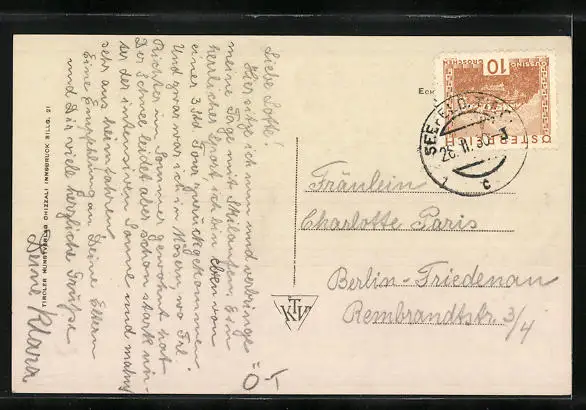 Liebe Lotte!
Hier sitze ich nun und verbringe
meine Tage mit Skilaufen. Ein
herrlicher Sport, ich bin eben von
einer 3 Std Tour zurückgekommen
und zwar war ich in Mösern, wo Frl.
Richter im Sommer gewohnt hat.
Der Schnee leidet aber schon stark un-
ter der intensiven Sonne und mahnt
sehr ans heimfahren.
Eine Empfehlung an Deine Eltern
und Dir viele herzliche Grüsse
Deine Klara
TIROLER KUNSTVERLAG CHIZZALI INNSBRUCK BILLG. 21
KTV
Fräulein
Charlotte Paris
Berlin-Friedenau
Rembrandtstr 3/4
10
GÜSSING
GROSCHEN
ÖSTERREICH
SEEFELD
26.II.30
c